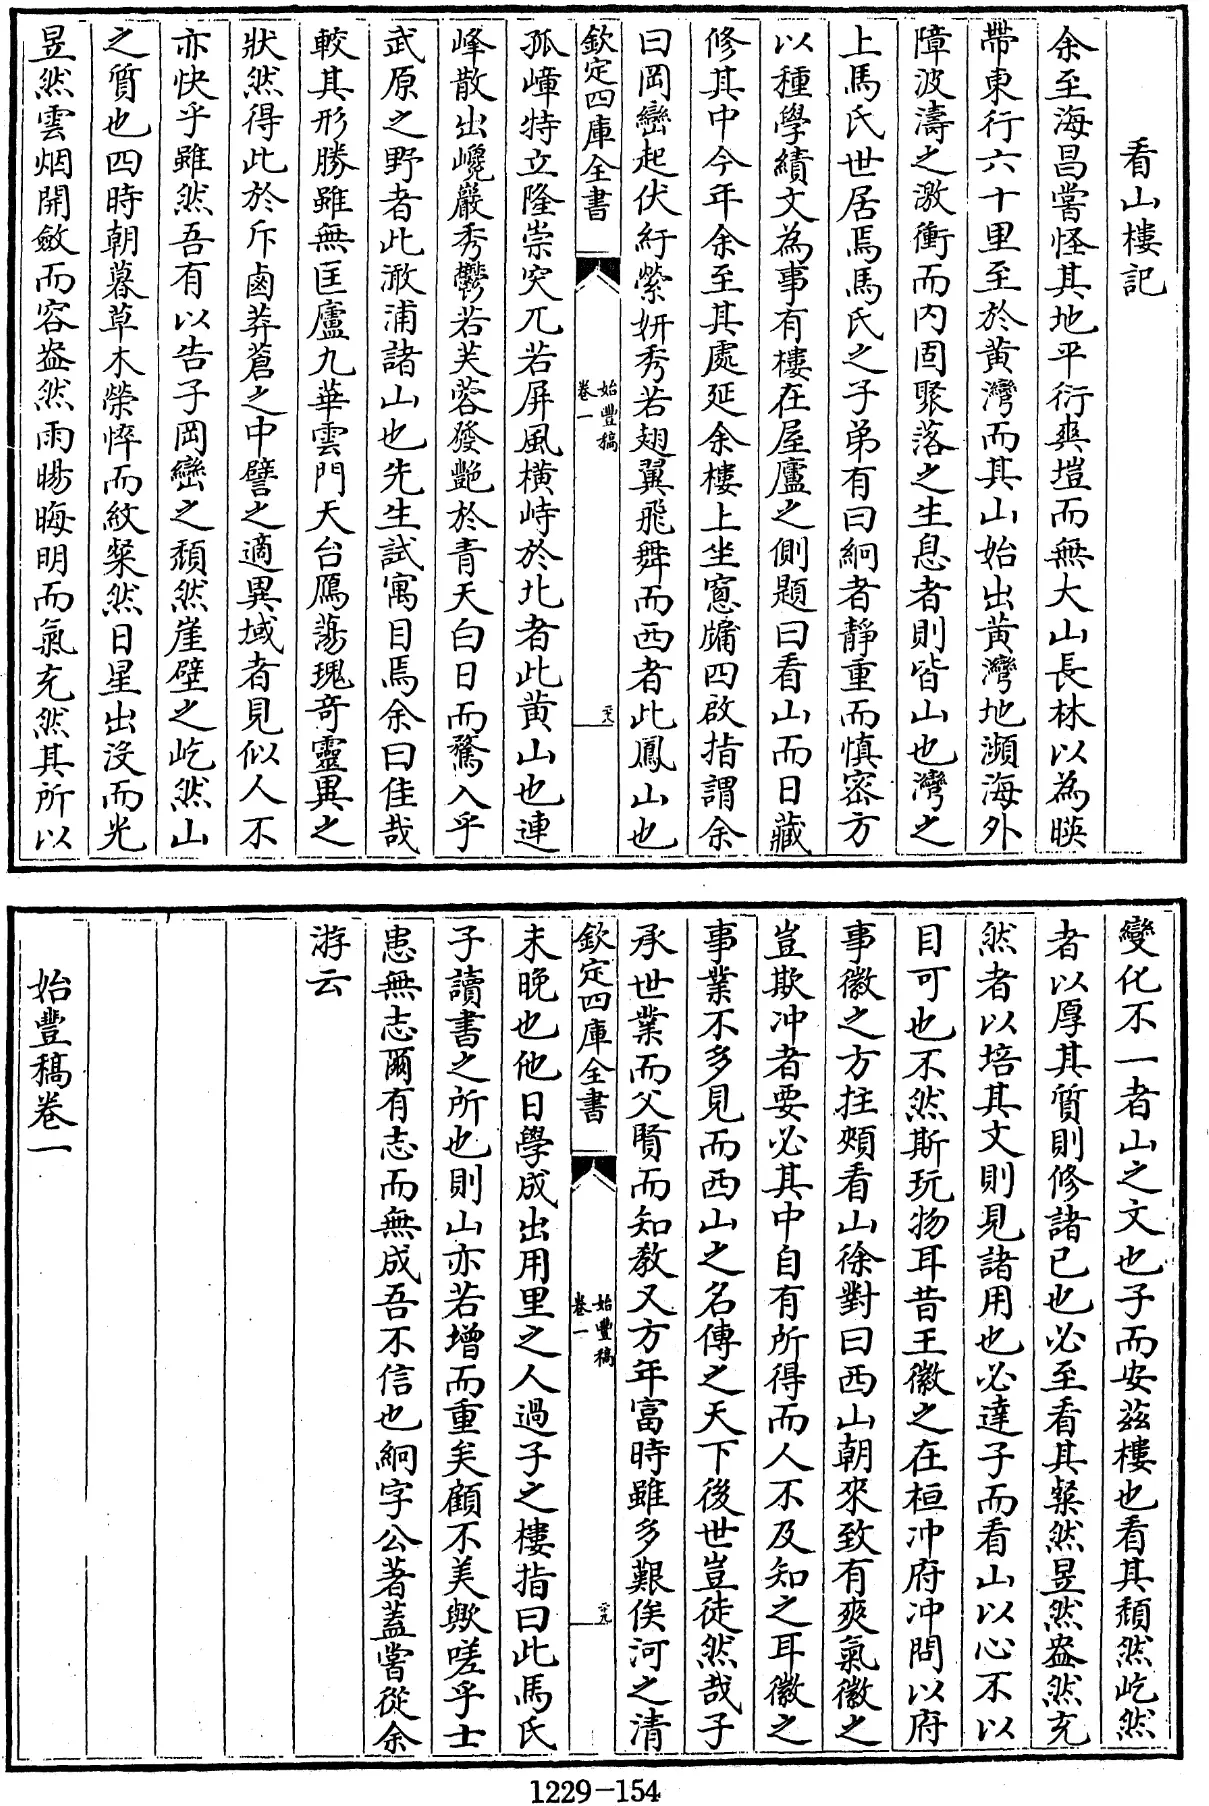 看山樓記
余至海昌嘗怪其地平衍爽塏而無大山長林以為暎
帶東行六十里至於黄灣而其山始出黄灣地瀕海外
障波濤之激衝而内固聚落之生息者則皆山也灣之
上馬氏世居焉馬氏之子弟有曰絅者靜重而慎宻方
以種學績文為事有樓在屋廬之側題曰看山而日藏
修其中今年余至其處延余樓上坐窻牖四啟指謂余
曰岡巒起伏紆縈妍秀若翅翼飛舞而西者此鳳山也
欽定四庫全書
始豐稿
卷一
二十八
孤嶂特立隆崇突兀若屏風横峙於北者此黄山也連
峰散出巉巖秀鬱若芙蓉發艶於青天白日而騖入乎
武原之野者此澉浦諸山也先生試寓目焉余曰佳哉
較其形勝雖無匡廬九華雲門天台鴈蕩瑰竒靈異之
狀然得此於斥鹵莽蒼之中譬之適異域者見似人不
亦快乎雖然吾有以告子岡巒之頹然崖壁之屹然山
之質也四時朝暮草木榮悴而紋粲然日星出沒而光
昱然雲烟開斂而容盎然雨暘晦明而氣充然其所以
變化不一者山之文也子而安兹樓也看其頹然屹然
者以厚其質則修諸已也必至看其粲然昱然盎然充
然者以培其文則見諸用也必達子而看山以心不以
目可也不然斯玩物耳昔王徽之在桓冲府冲問以府
事徽之方拄頰看山徐對曰西山朝來致有爽氣徽之
豈欺冲者要必其中自有所得而人不及知之耳徽之
事業不多見而西山之名傳之天下後世豈徒然哉子
承世業而父賢而知教又方年富時雖多艱俟河之清
欽定四庫全書
始豐稿
卷一
二十九
未晚也他日學成出用里之人過子之樓指曰此馬氏
子讀書之所也則山亦若增而重矣顧不美歟嗟乎士
患無志爾有志而無成吾不信也絅字公著蓋嘗從余
游云
始豐稿卷一
1229-154